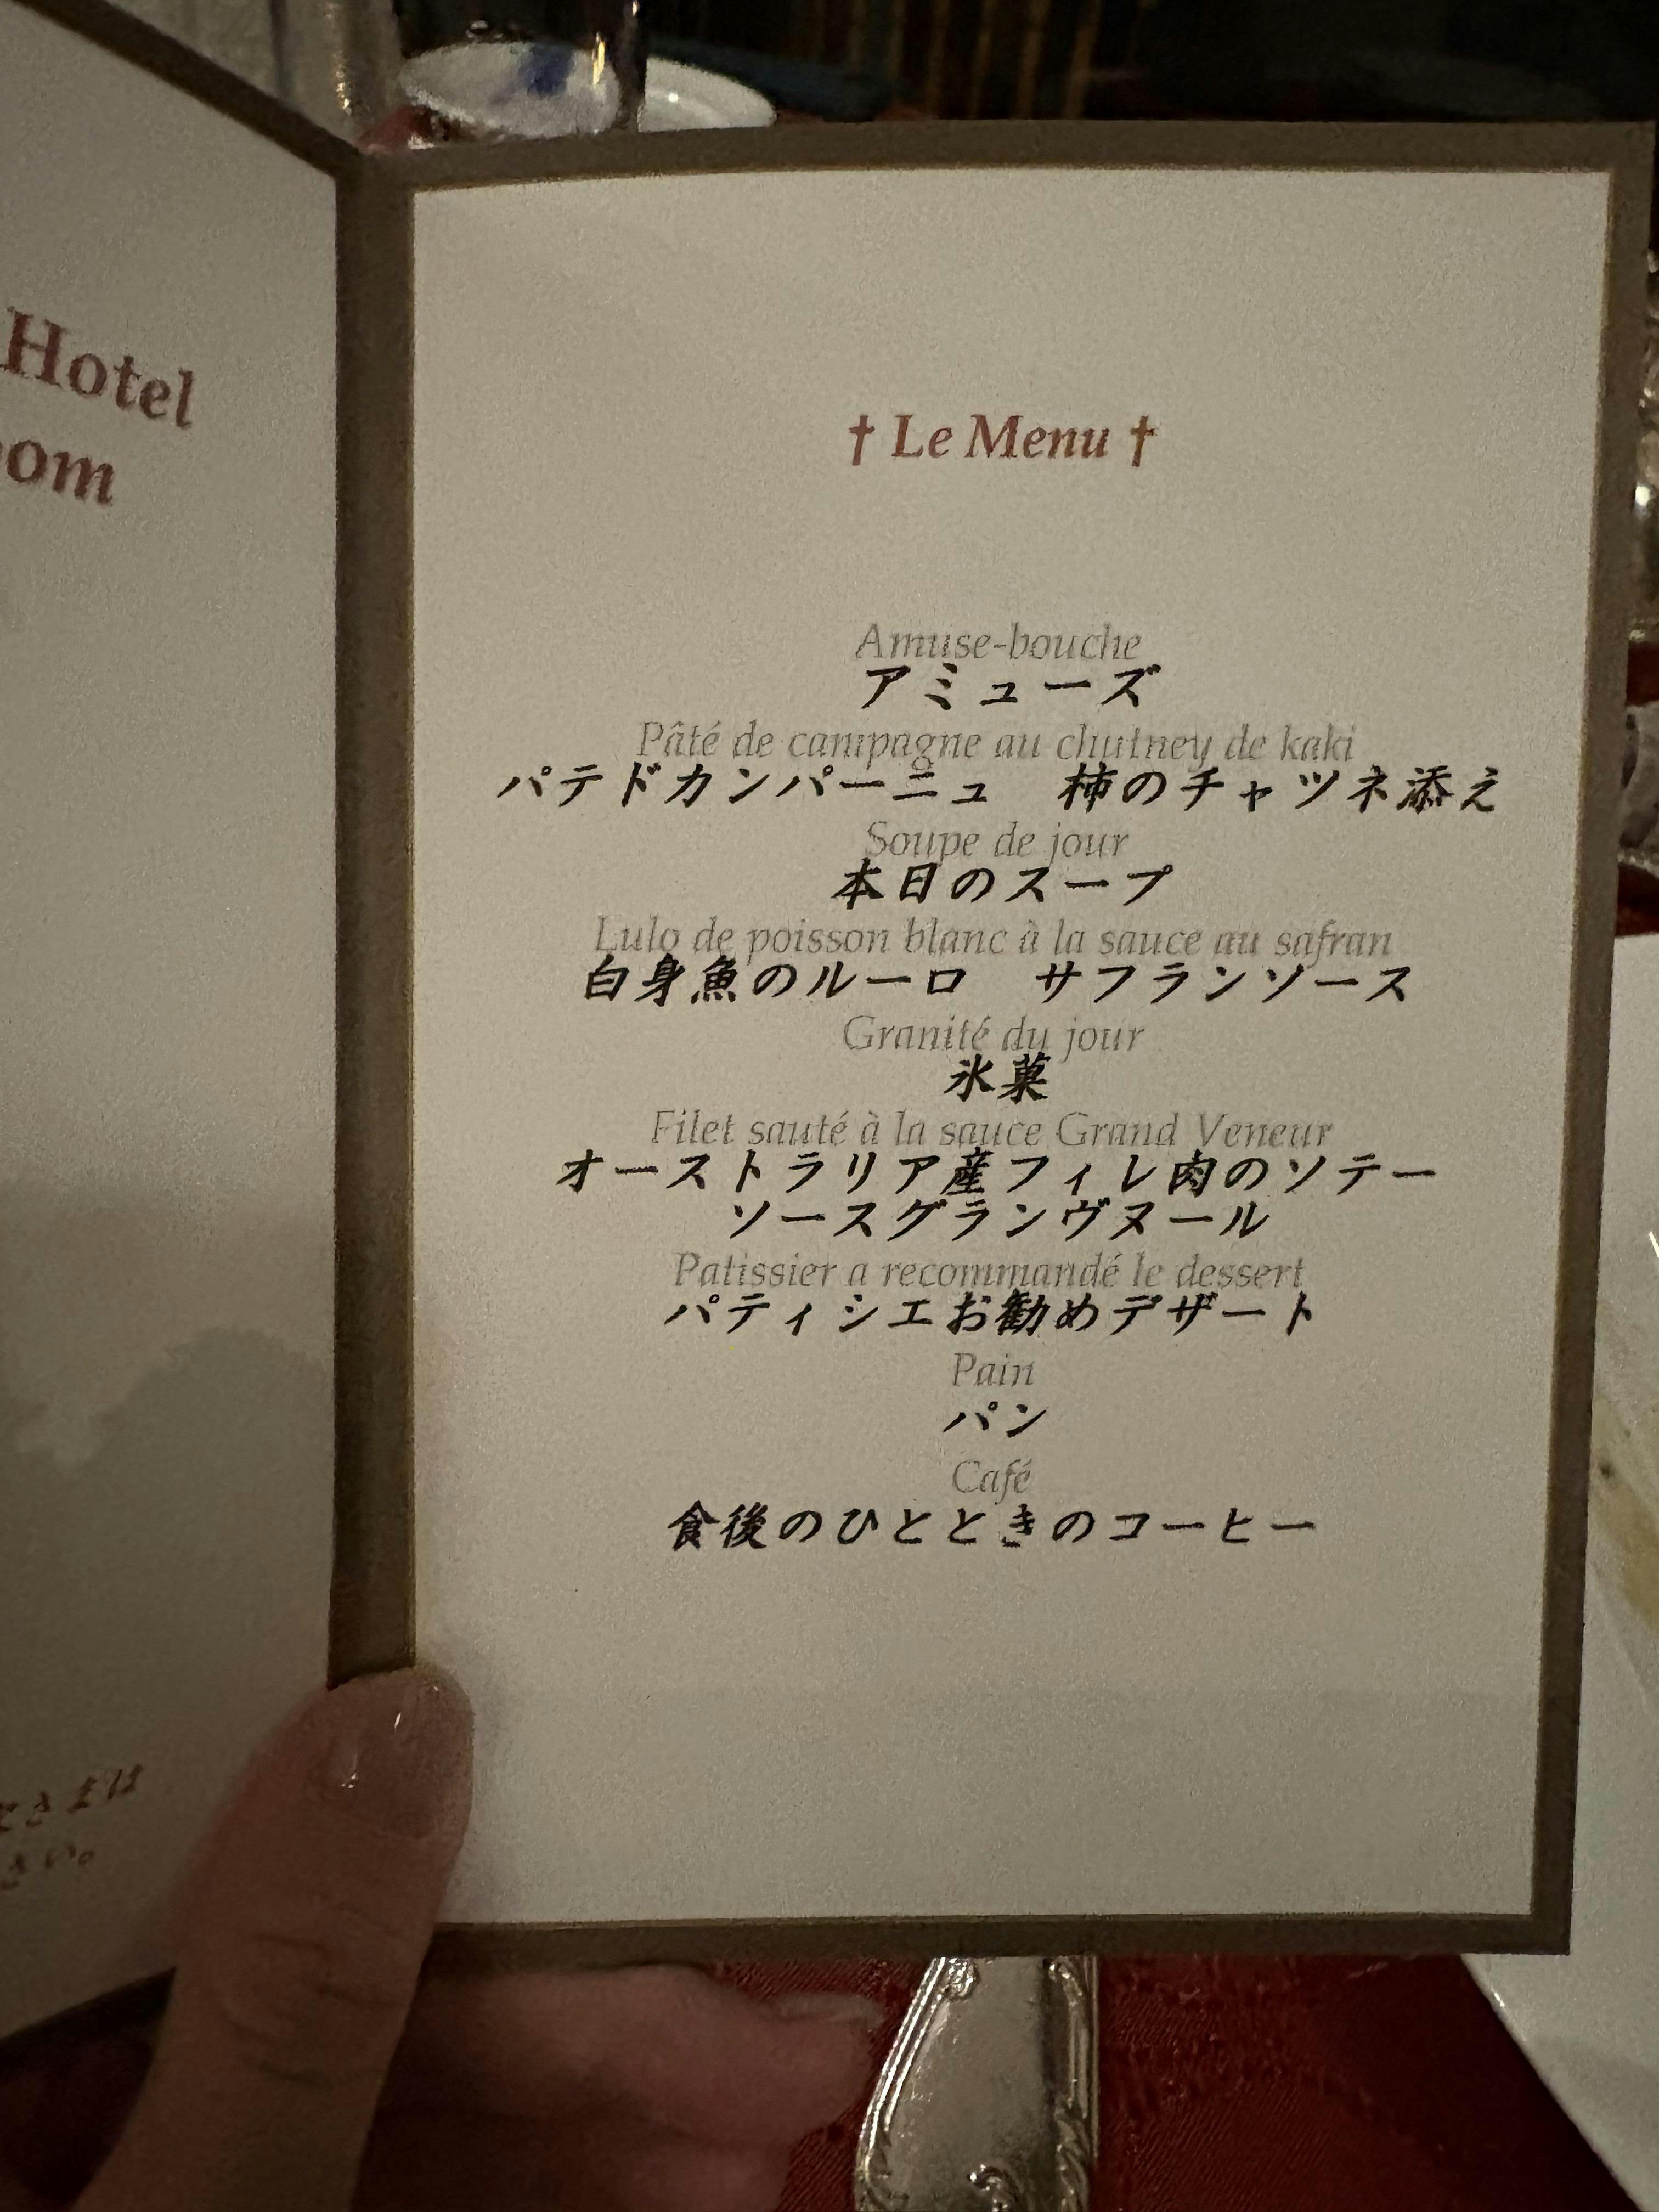 Hotel
† Le Menu †
Amuse-bouche
アミューズ
Pâté de campagne au chutney de kaki
パテドカンパーニュ　柿のチャツネ添え
Soupe de jour
本日のスープ
Lulo de poisson blanc à la sauce au safran
白身魚のルーロ　サフランソース
Granité du jour
氷菓
Filet sauté à la sauce Grand Veneur
オーストラリア産フィレ肉のソテー
ソースグランヴヌール
Patissier a recommandé le dessert
パティシエお勧めデザート
Pain
パン
Café
食後のひとときのコーヒー